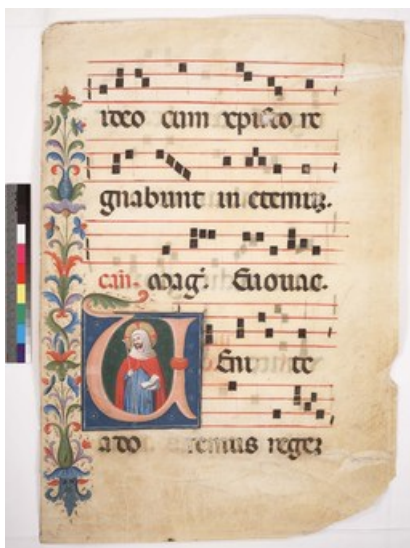 ideo cum xpisto re
gnabunt in eternuz.
can. mag. Euouae.
Ueni te
ado remus regez